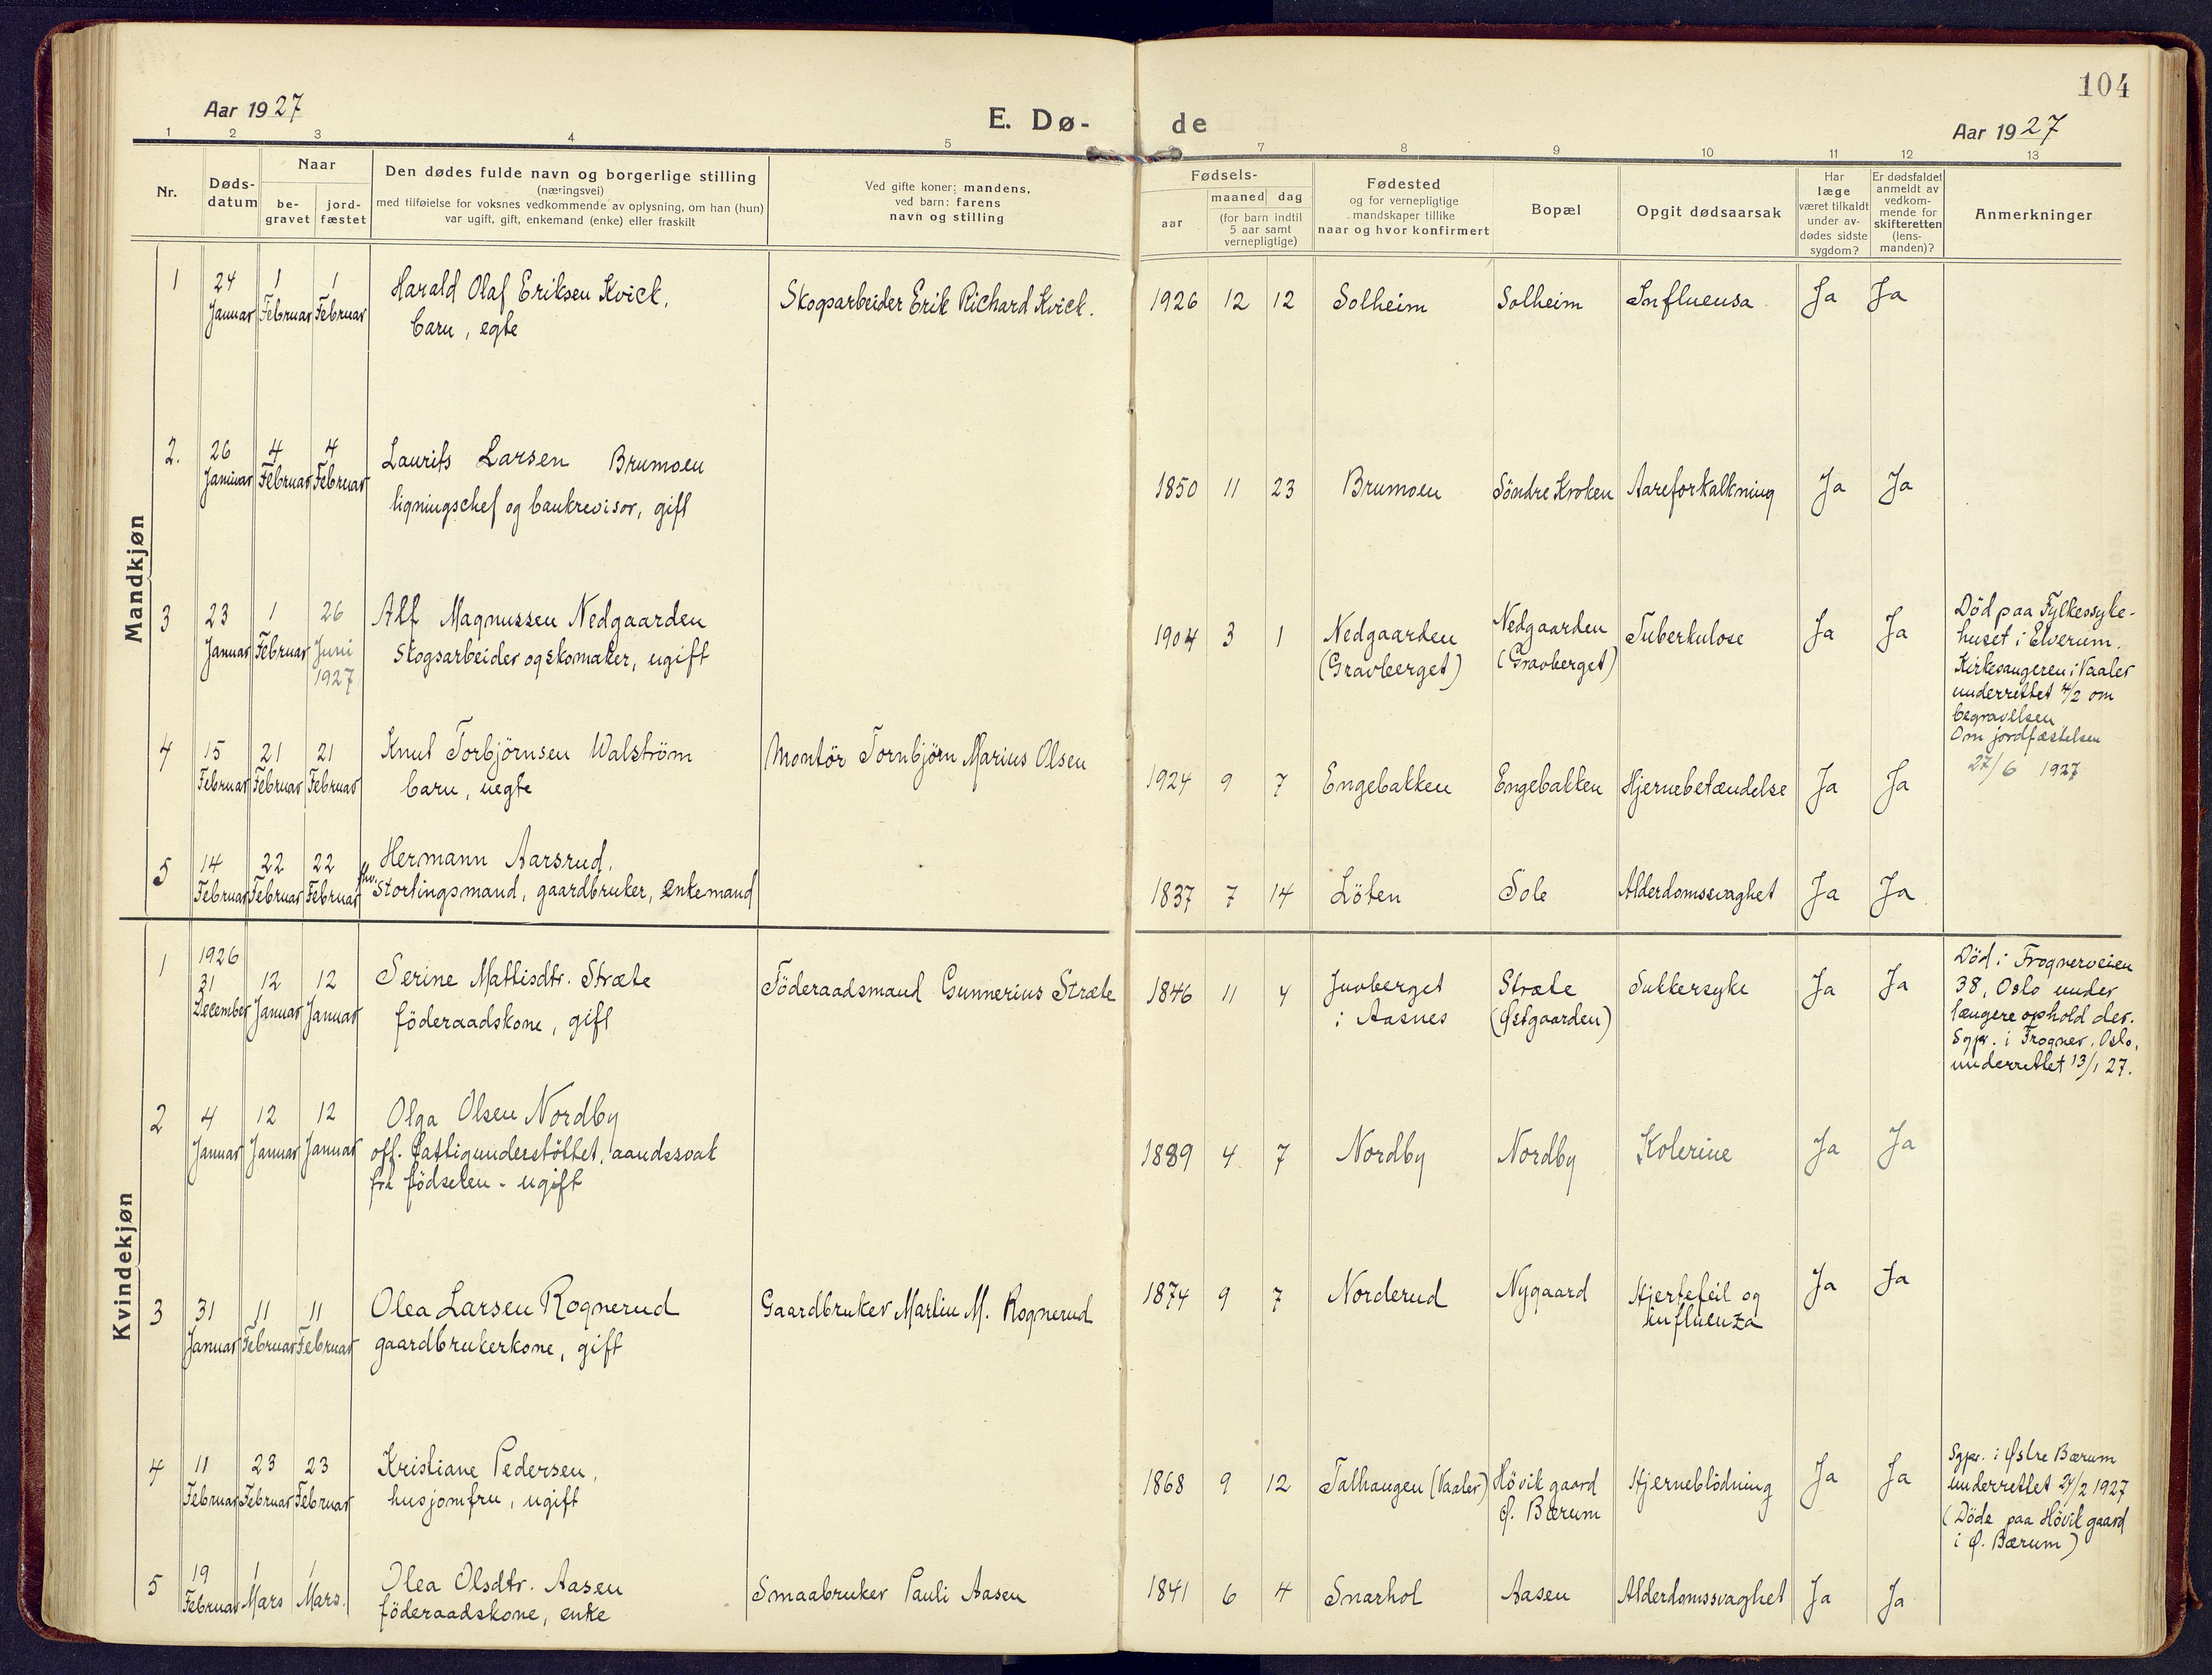 104
Aar 1927
E. Dø-
de
Aar 1927
1 2 3 4 5 6 7 8 9 10 11 12 13
Nr.
Døds-
datum
Naar
be-
gravet
jord-
fæstet
Den dødes fulde navn og borgerlige stilling
(næringsvei)
med tilføielse for voksnes vedkommende av oplysning, om han (hun)
var ugift, gift, enkemand (enke) eller fraskilt
Ved gifte koner: mandens,
ved barn: farens
navn og stilling
Fødsels-
aar
maaned dag
(for barn indtil
5 aar samt
vernepligtige)
Fødested
og for vernepligtige
mandskaper tillike
naar og hvor konfirmert
Bopæl
Opgit dødsaarsak
Har
læge
været tilkaldt
under av-
dødes sidste
sygdom?
Er dødsfaldet
anmeldt av
vedkom-
mende for
skifteretten
(lens-
manden)?
Anmerkninger
Mandkjøn
1
24
Januar
1
Februar
1
Februar
Harald Olaf Eriksen Kvick.
barn, egte
Skogsarbeider Erik Richard Kvick.
1926 12 12 Solheim Solheim Influensa Ja Ja
2.
26
Januar
4
Februar
4
Februar
Laurits Larsen Brumoen
ligningschef og bankrevisor, gift
1850 11 23 Brumoen Söndre Kroken Aareforkalkning Ja Ja
3
23
Januar
1
Februar
26
Juni
1927
Alf Magnussen Nedgaarden
Skogsarbeider og skomaker, ugift
1904 3 1
Nedgaarden
(Gravberget)
Nedgaarden
(Gravberget)
Tuberkulose Ja Ja
Død paa Fylkessyke-
huset i Elverum.
Kirkesangeren i Vaaler
underrettet 4/2 om
begravelsen
Om jordfæstelsen
27/6 1927
4
15
Februar
21
Februar
21
Februar
Knut Torbjörnsen Walström
barn, uegte
Montör Tornbjörn Marius Olsen
1924 9 7 Engebakken Engebakken Hjernebetændelse Ja Ja
5
14
Februar
22
Februar
22
Februar
Hermann Aarsrud.
fhv. Stortingsmand, gaardbruker, enkemand
1837 7 14 Löten Sole Alderdomssvaghet Ja Ja
Kvindekjøn
1
1926
31
December
12
Januar
12
Januar
Serine Mattisdtr. Stræte
föderaadskone, gift
Föderaadsmand Gunnerius Stræte
1846 11 4
Juvberget
i Aasnes
Stræte
(Østgaarden)
Sukkersyke Ja Ja
Död i Frognerveien
38, Oslo under
længere ophold der.
Sgpr. i Frogner, Oslo,
underrettet 13/1 27.
2
4
Januar
12
Januar
12
Januar
Olga Olsen Nordby
off. fattigunderstöttet, aandssvak
fra födselen - ugift
1889 4 7 Nordby Nordby Kolerine Ja Ja
3
31
Januar
11
Februar
11
Februar
Olea Larsen Rognerud
gaardbrukerkone, gift
Gaardbruker Martin M. Rognerud
1874 9 7 Norderud Nygaard
Hjertefeil og
influenza
Ja Ja
4
11
Februar
23
Februar
23
Februar
Kristiane Pedersen,
husjomfru, ugift
1868 9 12 Talhaugen (Vaaler)
Hövik gaard
Ø. Bærum
Hjerneblödning Ja Ja
Sgpr. i Østre Bærum
underrettet 24/2 1927
(Döde paa Hövik gaard
i Ø. Bærum)
5
19
Februar
1
Mars
1
Mars.
Olea Olsdtr. Aasen
föderaadskone, enke
Smaabruker Pauli Aasen
1841 6 4 Snarhol Aasen Alderdomssvaghet Ja Ja